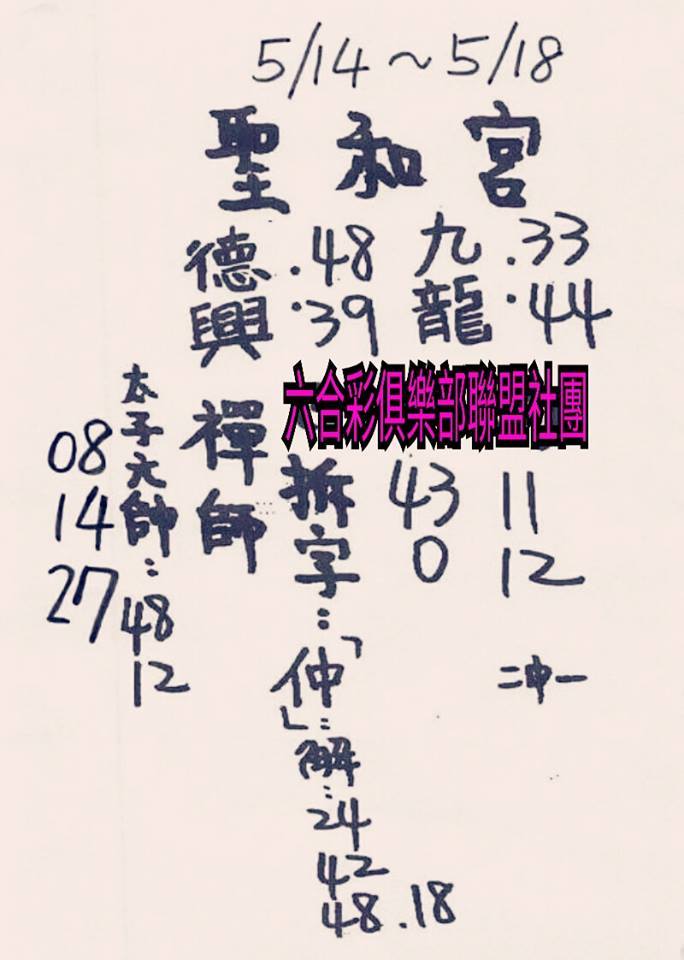 5/14~5/18
聖和宮
德興 .48 .39
九龍 .33 .44
六合彩俱樂部聯盟社團
禪師
拆字:「仲」:解:24 42 48.18
43 11
0 12
二中一
太子元帥:48 12
08
14
27